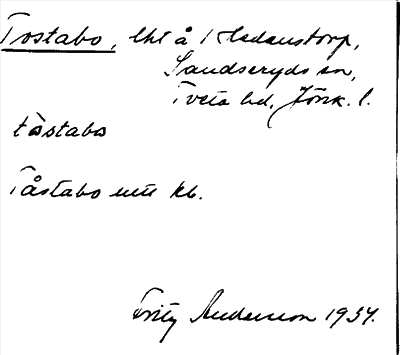 Tostabo, lht å 1 Hedenstorp,
Sandseryds sn,
Tveta hd, Jönk. l.
tòstabo
Tåstabo utt kb.
Fritz Andersson 1934.